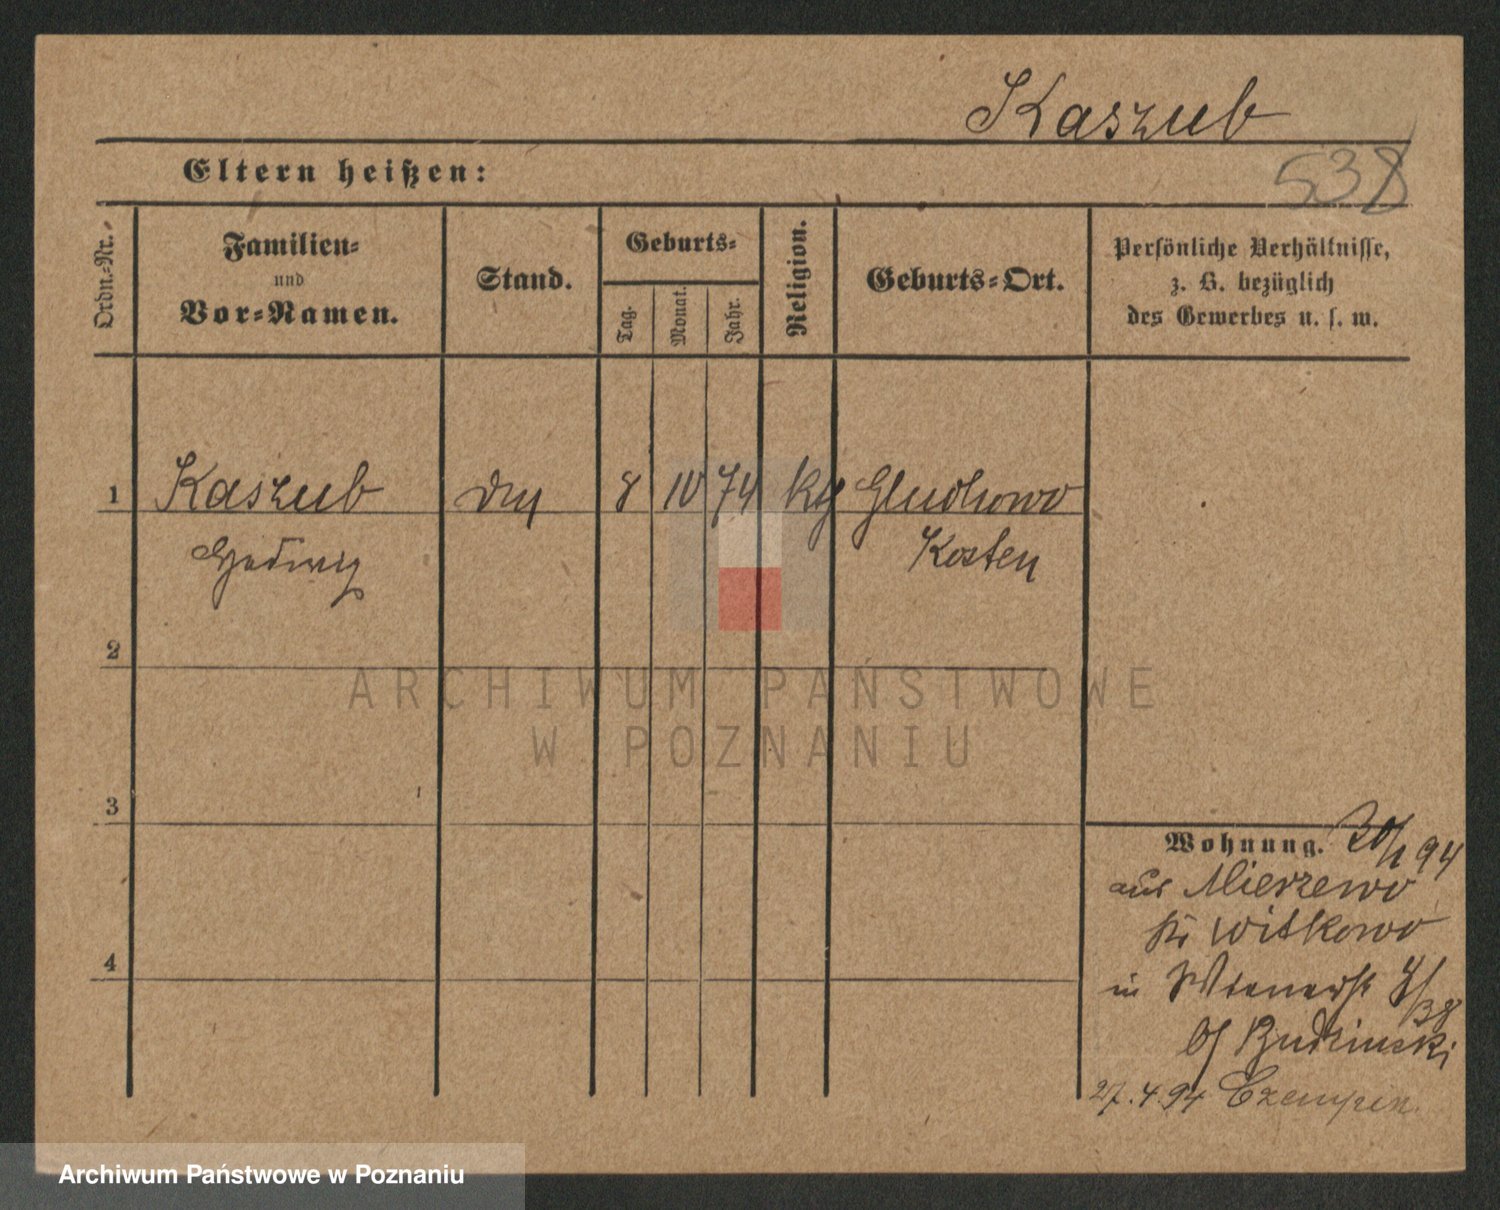 Kaszub
Eltern heißen:
538
Ordn.-Nr.
Familien-
und
Vor-Namen.
Stand.
Geburts-
Tag.
Monat.
Jahr.
Religion.
Geburts-Ort.
Persönliche Verhältnisse,
z. B. bezüglich
des Gewerbes u. s. w.
1 Kaszub 8 10 74 kth Gluchowo
Hedwig Kosten
2
ARCHIWUM PAŃSTWOWE
W POZNANIU
3
Wohnung. 20/1 94
aus Mierzewo
Kr Witkowo
in Wienerst
bf Budzinski
27.4.94 Czempin
4
Archiwum Państwowe w Poznaniu